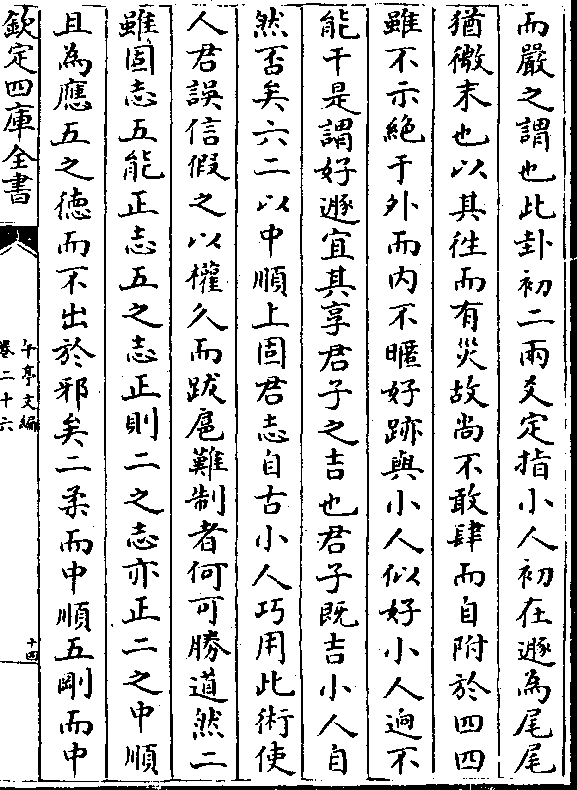 而嚴之謂也此卦初二兩爻定指小人初在遯為尾尾
猶微末也以其徃而有災故尚不敢肆而自附於四四
雖不示絶于外而内不暱好跡與小人似好小人逈不
能干是謂好遯宜其享君子之吉也君子既吉小人自
然否矣六二以中順上固君志自古小人巧用此術使
人君誤信假之以權久而跋扈難制者何可勝道然二
雖固志五能正志五之志正則二之志亦正二之中順
且為應五之徳而不出於邪矣二柔而中順五剛而中
欽定四庫全書
午亭文編
卷二十六
十四